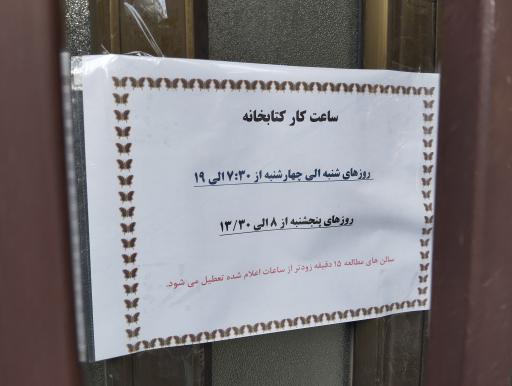 ساعت کار کتابخانه
روزهای شنبه الی چهارشنبه از ۷:۳۰ الی ۱۹
روزهای پنجشنبه از ۸ الی ۱۳/۳۰
سالن های مطالعه ۱۵ دقیقه زودتر از ساعات اعلام شده تعطیل می شود.